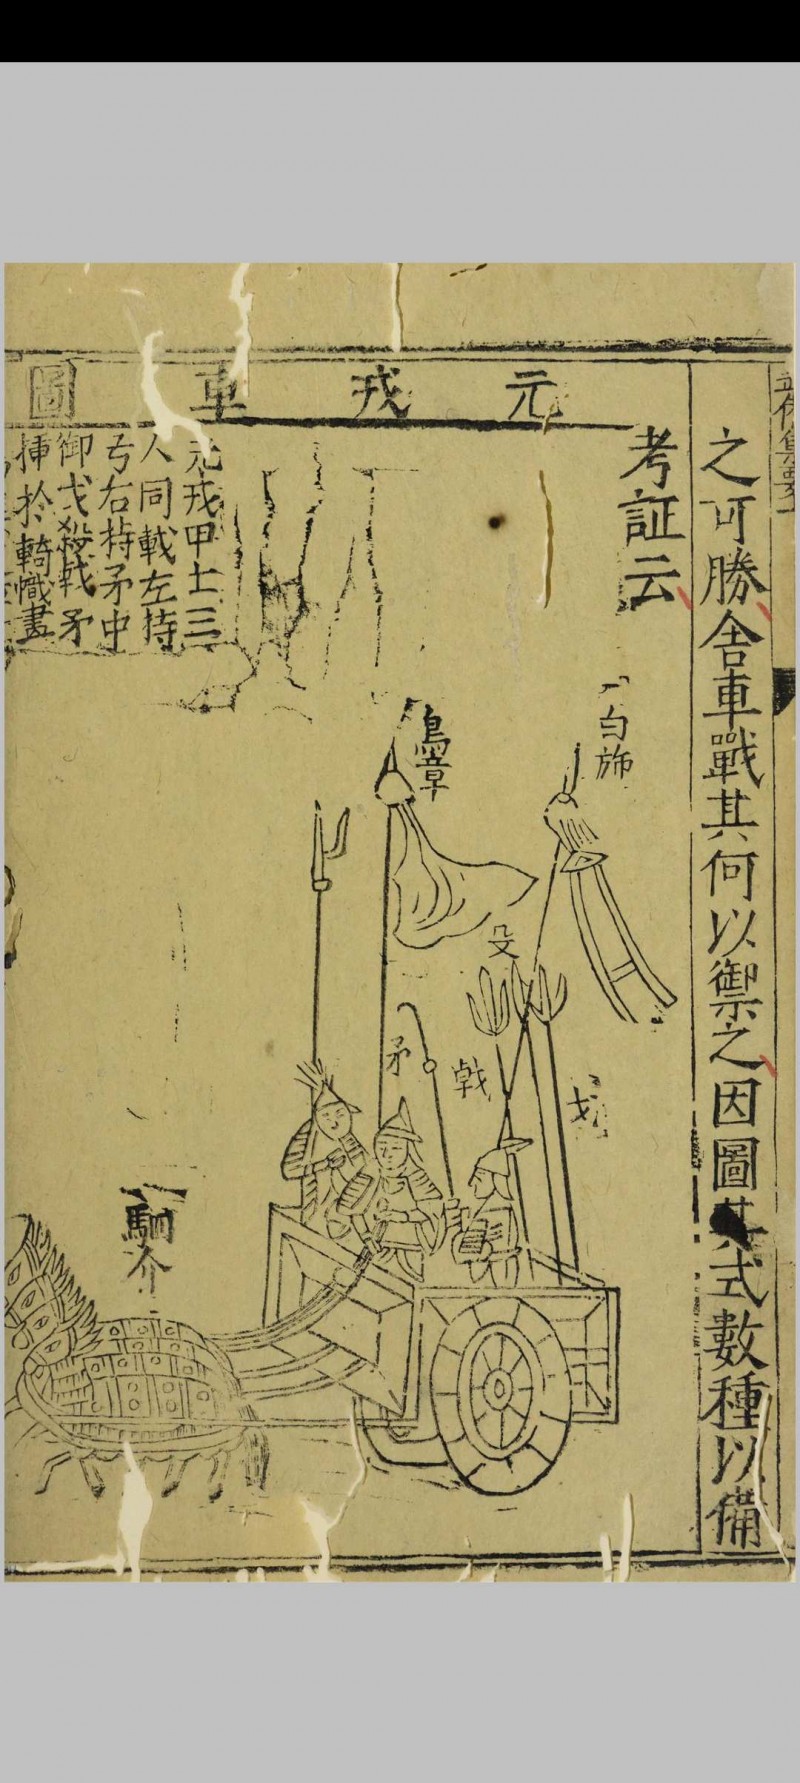 之可勝舍車戰其何以禦之因圖其式數種以備
考証云
元戎車圖
元戎甲士三
人同載左持
弓右持矛中
御戈殺戟矛
揷於輢幟畫
白斾
鳥章
殳
矛
戟
駟介